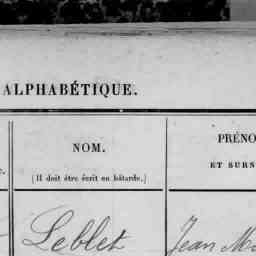 ALPHABÉTIQUE.
NOM.
(Il doit être écrit en bâtarde.)
PRÉNO
ET SURN
Leblet
Jean M